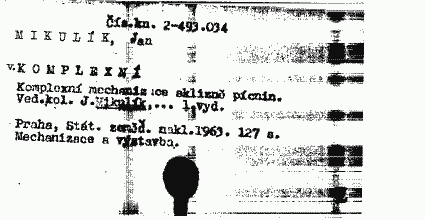 Čís.kn. 2-493.034
MIKULÍK, Jan
v.KOMPLEXNÍ
Komplexní mechanizace sklizně pícnin.
Ved.kol. J.Mikulík,... 1.vyd.
Praha, Stát. zeměd. nakl.1963. 127 s.
Mechanizace a výstavba.